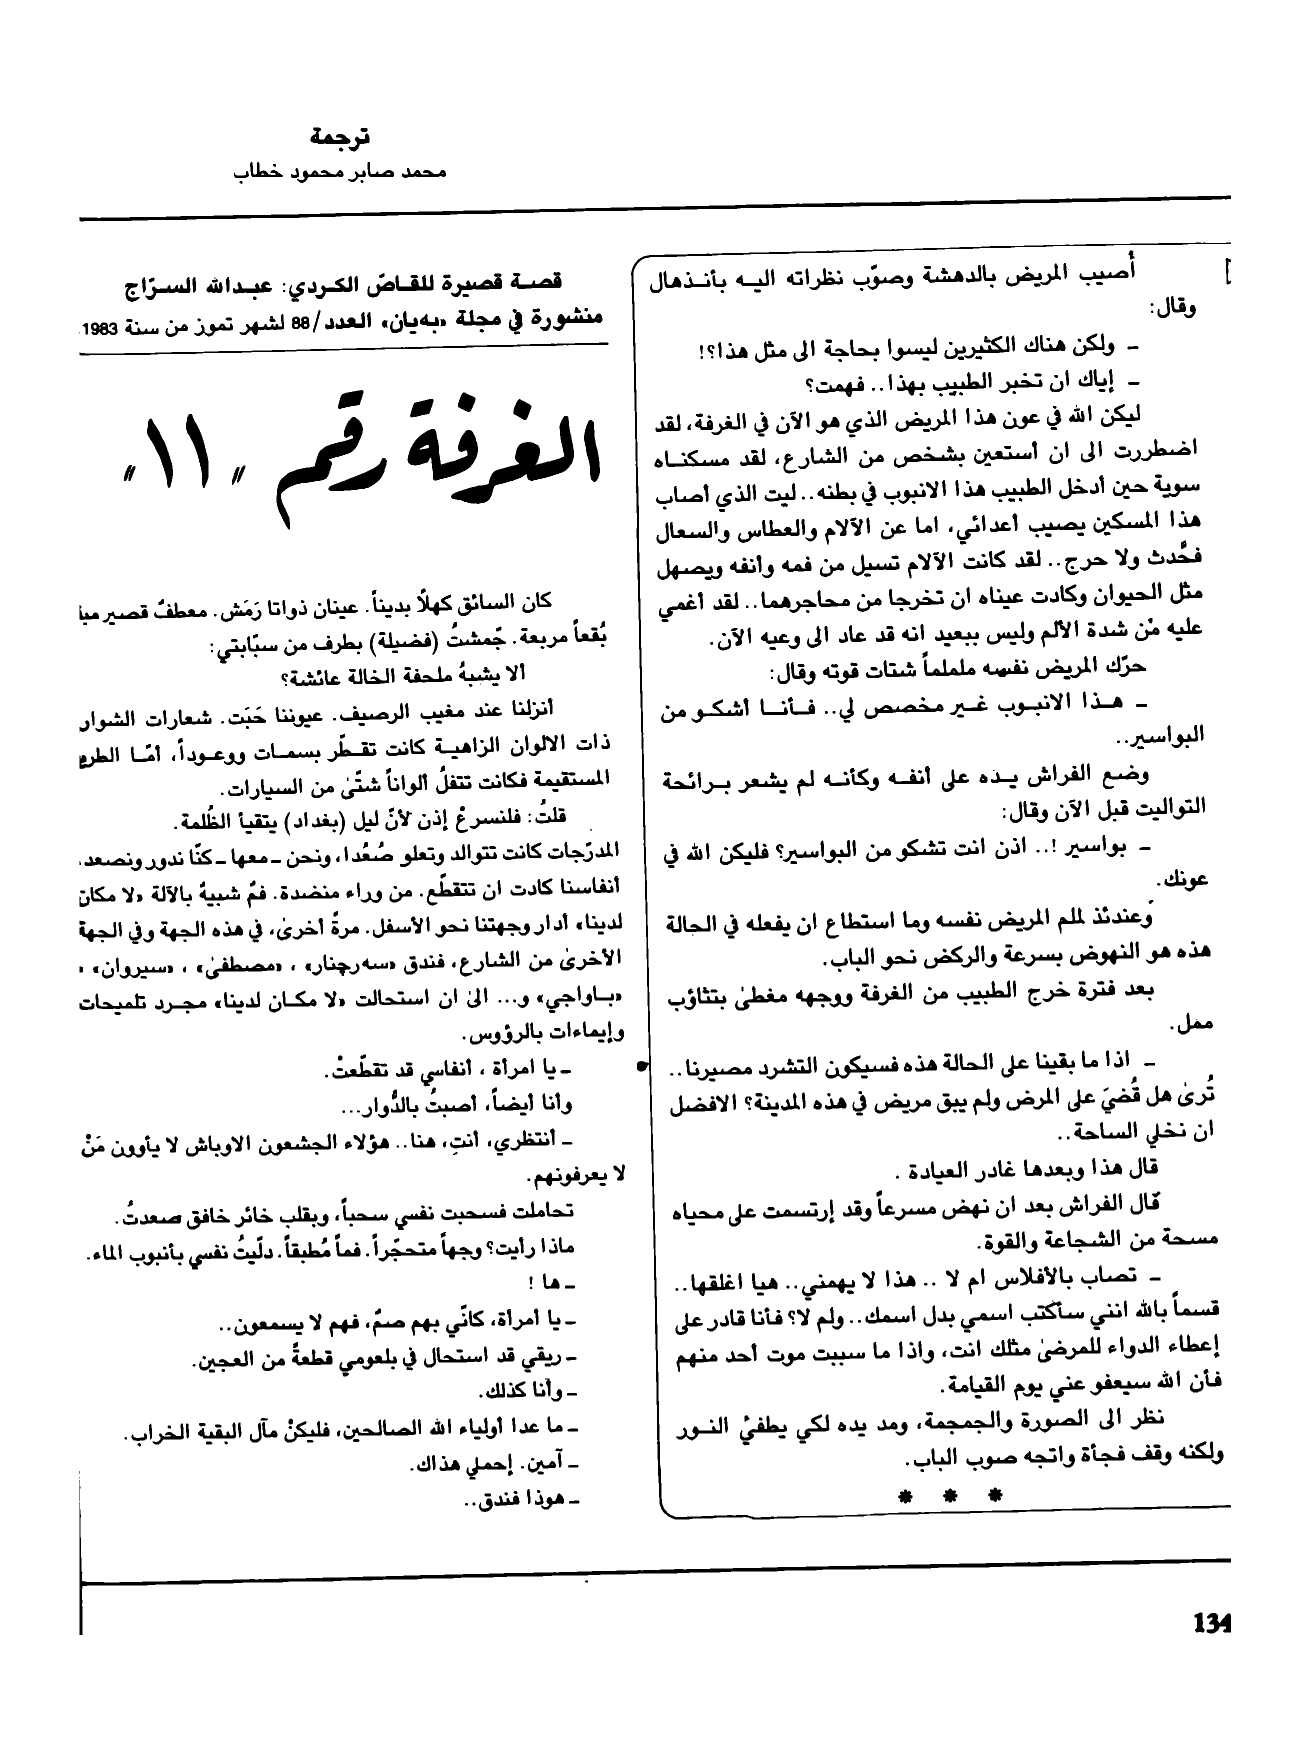 ترجمة
محمد صابر محمود خطاب
أُصيب المريض بالدهشة وصوّب نظراته اليـه بأنـذهال
وقال:
ـ ولكن هناك الكثيرين ليسوا بحاجة الى مثل هذا؟!
ـ إياك ان تخبر الطبيب بهذا.. فهمت؟
ليكن الله في عون هذا المريض الذي هو الآن في الغرفة، لقد
اضطررت الى ان أستعين بشخص من الشارع، لقد مسكنـاه
سوية حين أدخل الطبيب هذا الانبوب في بطنه.. ليت الذي أصاب
هذا المسكين يصيب أعدائي، اما عن الآلام والعطاس والسعال
فحَّدث ولا حرج.. لقد كانت الآلام تسيل من فمه وأنفه ويصهل
مثل الحيوان وكادت عيناه ان تخرجا من محاجرهما.. لقد أغمي
عليه مْن شدة الألم وليس ببعيد انه قد عاد الى وعيه الآن.
حرّك المريض نفسه ململماً شتات قوته وقال:
ـ هـذا الانبـوب غـير مخصص لي.. فـأنـا أشكـو من
البواسير..
وضع الفراش يـده على أنفـه وكأنـه لم يشعر بـرائحة
التواليت قبل الآن وقال:
ـ بواسير !.. اذن انت تشكو من البواسير؟ فليكن الله في
عونك.
وعندئذ لملم المريض نفسه وما استطاع ان يفعله في الحالة
هذه هو النهوض بسرعة والركض نحو الباب.
بعد فترة خرج الطبيب من الغرفة ووجهه مغطىٰ بتثاؤب
ممل.
ـ اذا ما بقينا على الحالة هذه فسيكون التشرد مصيرنا..
تُرىٰ هل قُضيَ على المرض ولم يبق مريض في هذه المدينة؟ الافضل
ان نخلي الساحة..
قال هذا وبعدها غادر العيادة .
قال الفراش بعد ان نهض مسرعاً وقد إرتسمت على محياه
مسحة من الشجاعة والقوة.
ـ تصاب بالأفلاس ام لا .. هذا لا يهمني.. هيا اغلقها..
قسماً بالله انني سأكتب اسمي بدل اسمك.. ولم لا؟ فأنا قادر على
إعطاء الدواء للمرضىٰ مثلك انت، واذا ما سببت موت أحد منهم
فـأن الله سيعفو عني يوم القيامة.
نظر الى الصورة والجمجمة، ومد يده لكي يطفيْ النـور
ولكنه وقف فجأة واتجه صوب الباب.
* * *
قصـة قصيرة للقـاصّ الكـردي: عبـدالله السـرّاج
منشورة في مجلة «بەيان» العدد/88 لشهر تموز من سنة 1983
الغرفة رقم «١١»
كان السائق كهلًا بديناً. عينان ذواتا رَمَش. معطفٌ قصير
بُقعاً مربعة. جّمشتُ (فضيلة) بطرف من سبّابتي:
ألا يشبهُ ملحفة الخالة عائشة؟
أنزلنا عند مغيب الرصيف. عيوننا حَبَت. شعارات
ذات الالوان الزاهيـة كانت تقـطّر بسمـات ووعـوداً، أمّـا
المستقيمة فكانت تتفلُ ألواناً شتّىٰ من السيارات.
قلتُ: فلنسرعْ إذن لأنّ ليل (بغداد) يتقيأ الظُلمة.
المدرّجات كانت تتوالد وتعلو صُعُدا، ونحن ـ معها ـ كنّا ندور ونصعد.
أنفاسنا كادت ان تتقطّع. من وراء منضدة. فمٌ شبيهٌ بالآلة «لا مكان
لدينا» أدار وجهتنا نحو الأسفل. مرةً أخرىٰ، في هذه الجهة وفي الجهة
الأخرىٰ من الشارع، فندق «سەرچنار» ، «مصطفىٰ» ، «سيروان» ،
«بـاواجي» و... الىٰ ان استحالت «لا مكـان لدينا» مجـرد تلميحات
وإيماءات بالرؤوس.
ـ يا امرأة ، أنفاسي قد تقطّعتْ.
وأنا أيضاً، أصبتُ بالدُوار...
ـ أنتظري، أنتِ، هنا.. هؤلاء الجشعون الاوباش لا يأوون مَنْ
لا يعرفونهم.
تحاملت فسحبت نفسي سحباً، وبقلب خائر خافق صعدتُ.
ماذا رأيت؟ وجهاً متحجّراً. فماً مُطبقاً. دلّيتُ نفسي بأنبوب الماء.
ـ ها !
ـ يا أمرأة، كأنّي بهم صمّ، فهم لا يسمعون..
ـ ريقي قد استحال في بلعومي قطعةً من العجين.
ـ وأنا كذلك.
ـ ما عدا أولياء الله الصالحين، فليكنْ مآل البقية الخراب.
ـ آمين. إحملي هذاك.
ـ هوذا فندق..
134